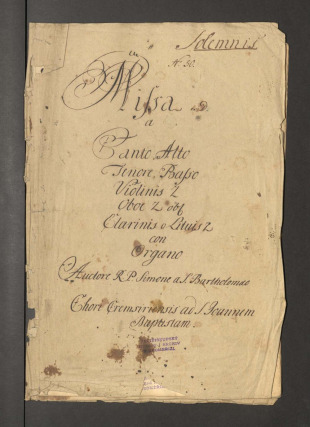 Solemnis
N. 50.
Missa
a
Canto, Alto
Tenore, Basso
Violinis 2
Oboe 2 obl
Clarinis o Lituis 2
con
Organo
Auctore R. P. Simone a S. Bartholomæo
Chori Cremsiriensis ad S. Joannem
Baptistam.